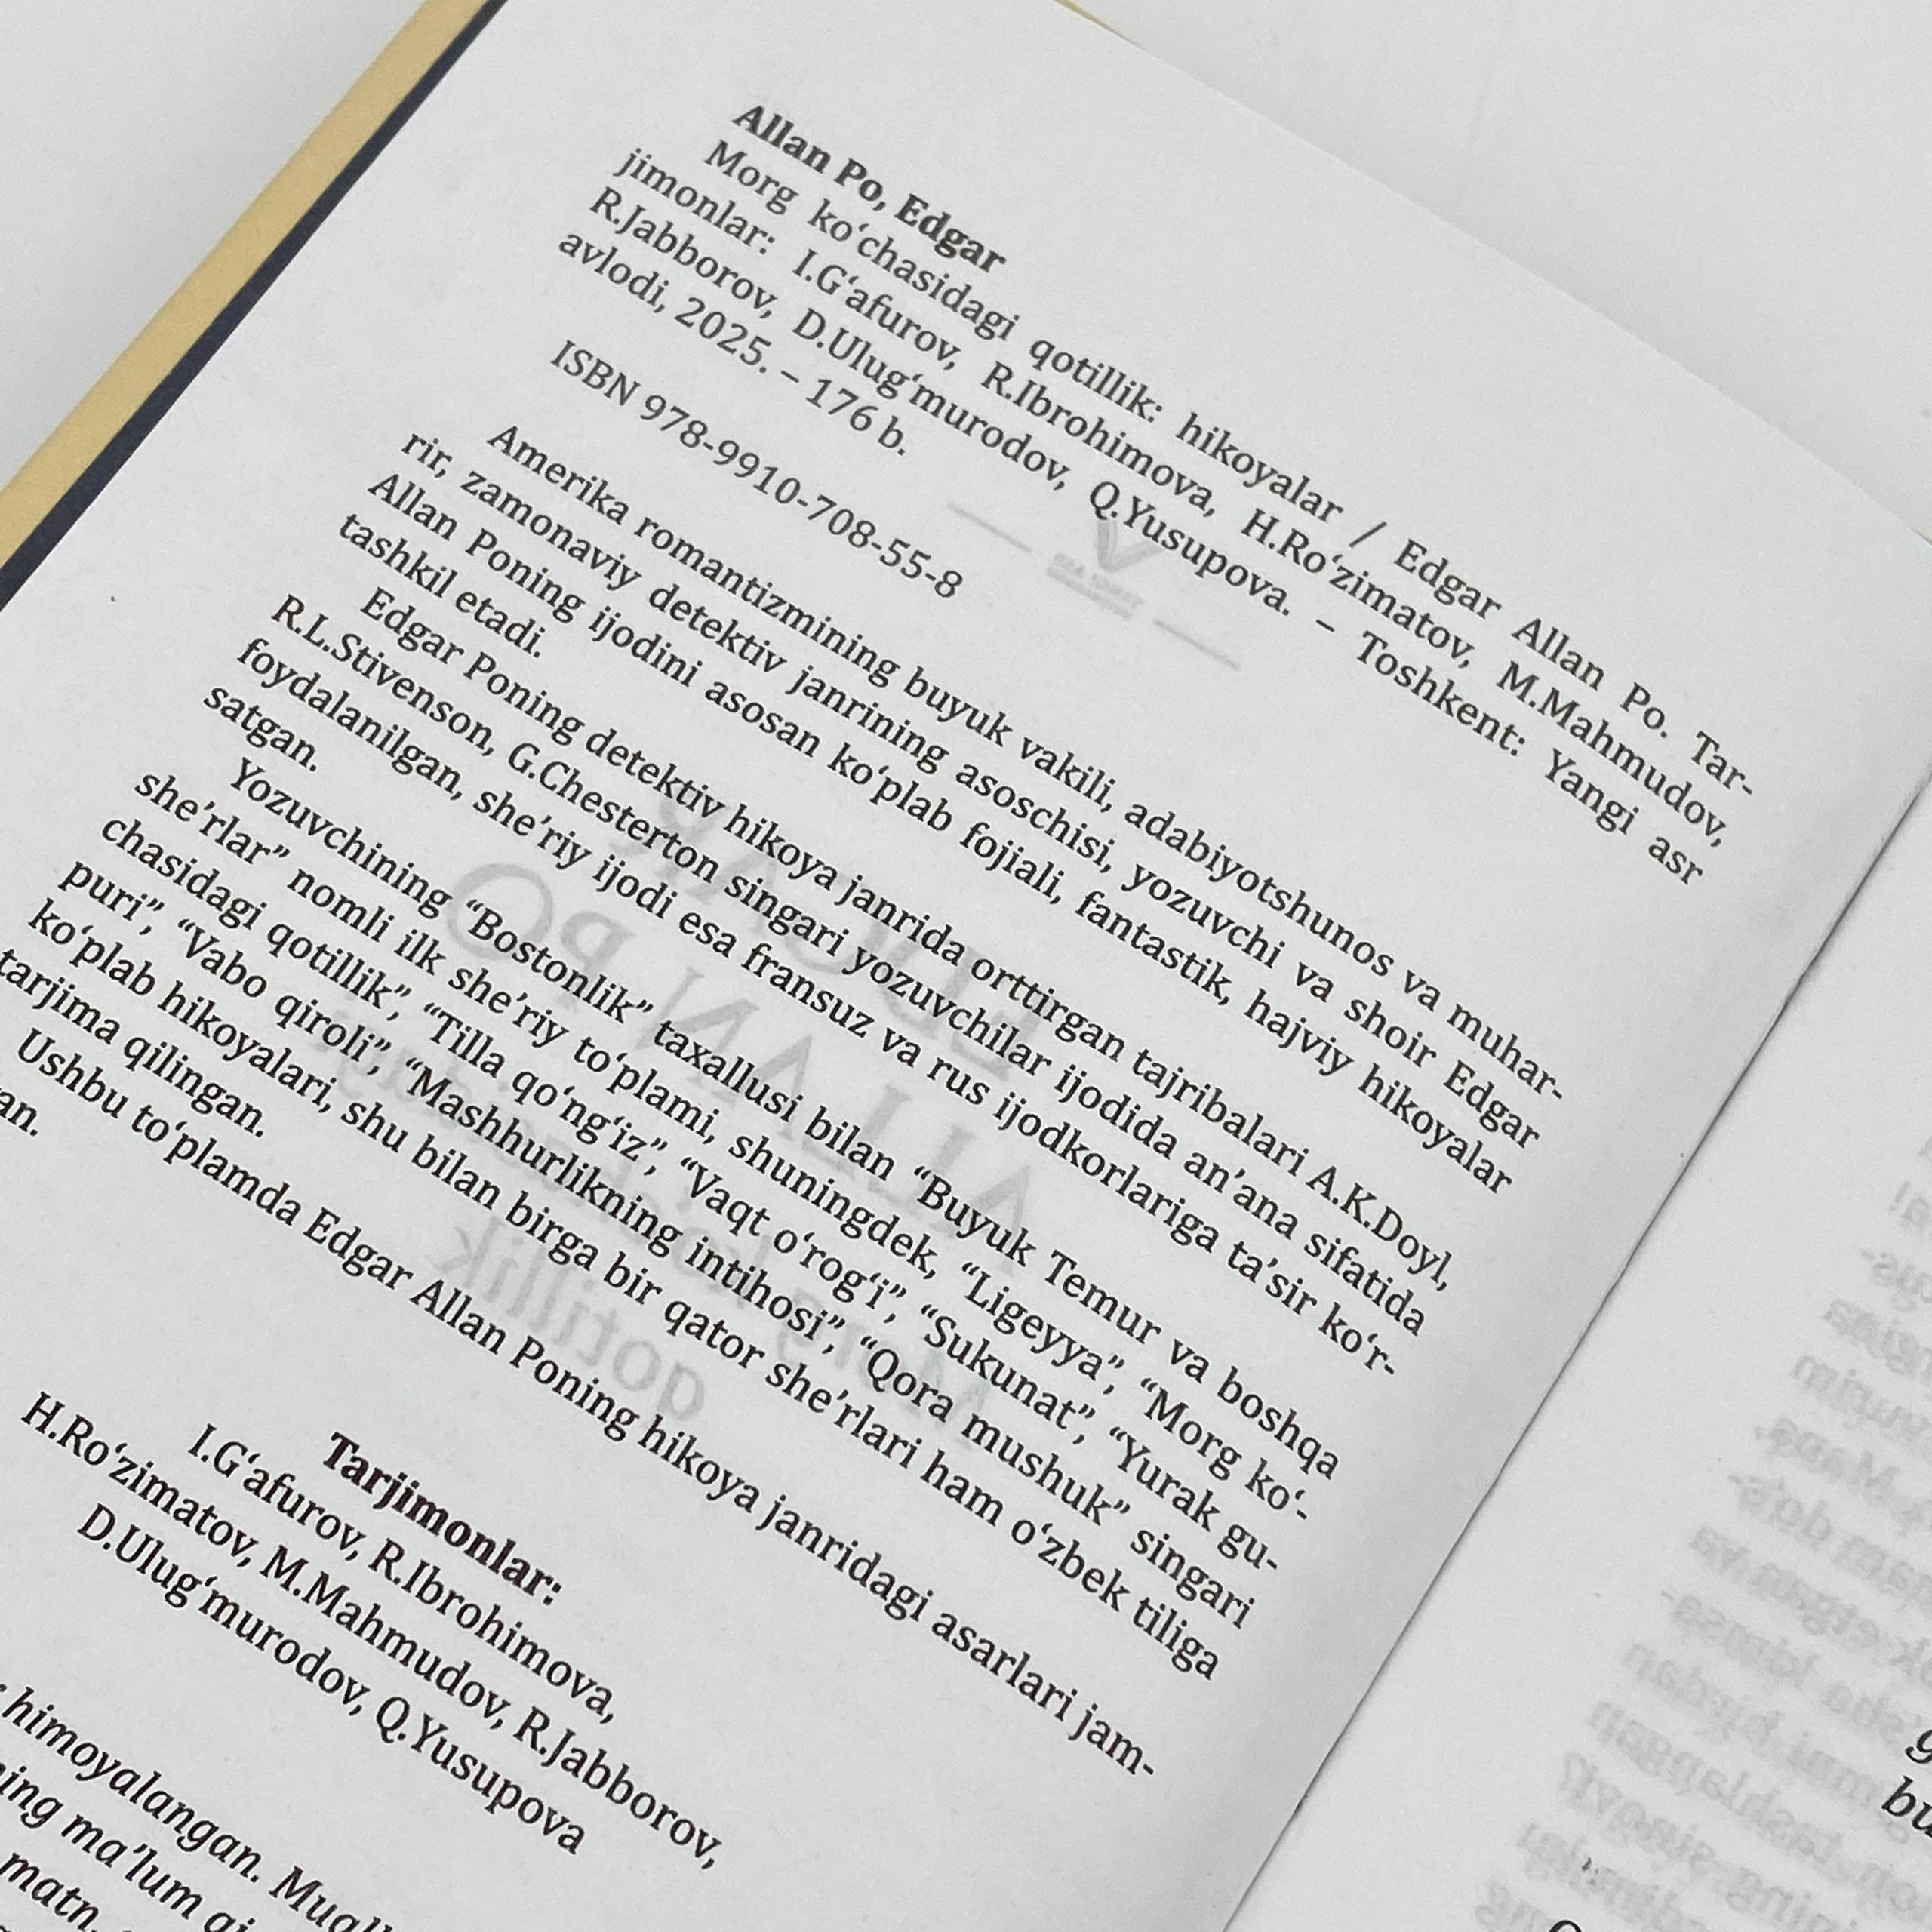 Allan Po, Edgar
Morg ko‘chasidagi qotillik: hikoyalar / Edgar Allan Po. Tar-
jimonlar: I.G‘afurov, R.Ibrohimova, H.Ro‘zimatov, M.Mahmudov,
R.Jabborov, D.Ulug‘murodov, Q.Yusupova. – Toshkent: Yangi asr
avlodi, 2025. – 176 b.
ISBN 978-9910-708-55-8
Amerika romantizmining buyuk vakili, adabiyotshunos va muhar-
rir, zamonaviy detektiv janrining asoschisi, yozuvchi va shoir Edgar
Allan Poning ijodini asosan ko‘plab fojiali, fantastik, hajviy hikoyalar
tashkil etadi.
Edgar Poning detektiv hikoya janrida orttirgan tajribalari A.K.Doyl,
R.L.Stivenson, G.Chesterton singari yozuvchilar ijodida an’ana sifatida
foydalanilgan, she’riy ijodi esa fransuz va rus ijodkorlariga ta’sir ko‘r-
satgan.
Yozuvchining “Bostonlik” taxallusi bilan “Buyuk Temur va boshqa
she’rlar” nomli ilk she’riy to‘plami, shuningdek, “Ligeyya”, “Morg ko‘-
chasidagi qotillik”, “Tilla qo‘ng‘iz”, “Vaqt o‘rog‘i”, “Sukunat”, “Yurak gu-
puri”, “Vabo qiroli”, “Mashhurlikning intihosi”, “Qora mushuk” singari
ko‘plab hikoyalari, shu bilan birga bir qator she’rlari ham o‘zbek tiliga
tarjima qilingan.
Ushbu to‘plamda Edgar Allan Poning hikoya janridagi asarlari jam-
an.
Tarjimonlar:
I.G‘afurov, R.Ibrohimova,
H.Ro‘zimatov, M.Mahmudov, R.Jabborov,
D.Ulug‘murodov, Q.Yusupova
himoyalangan.
ing ma’lum
matn.